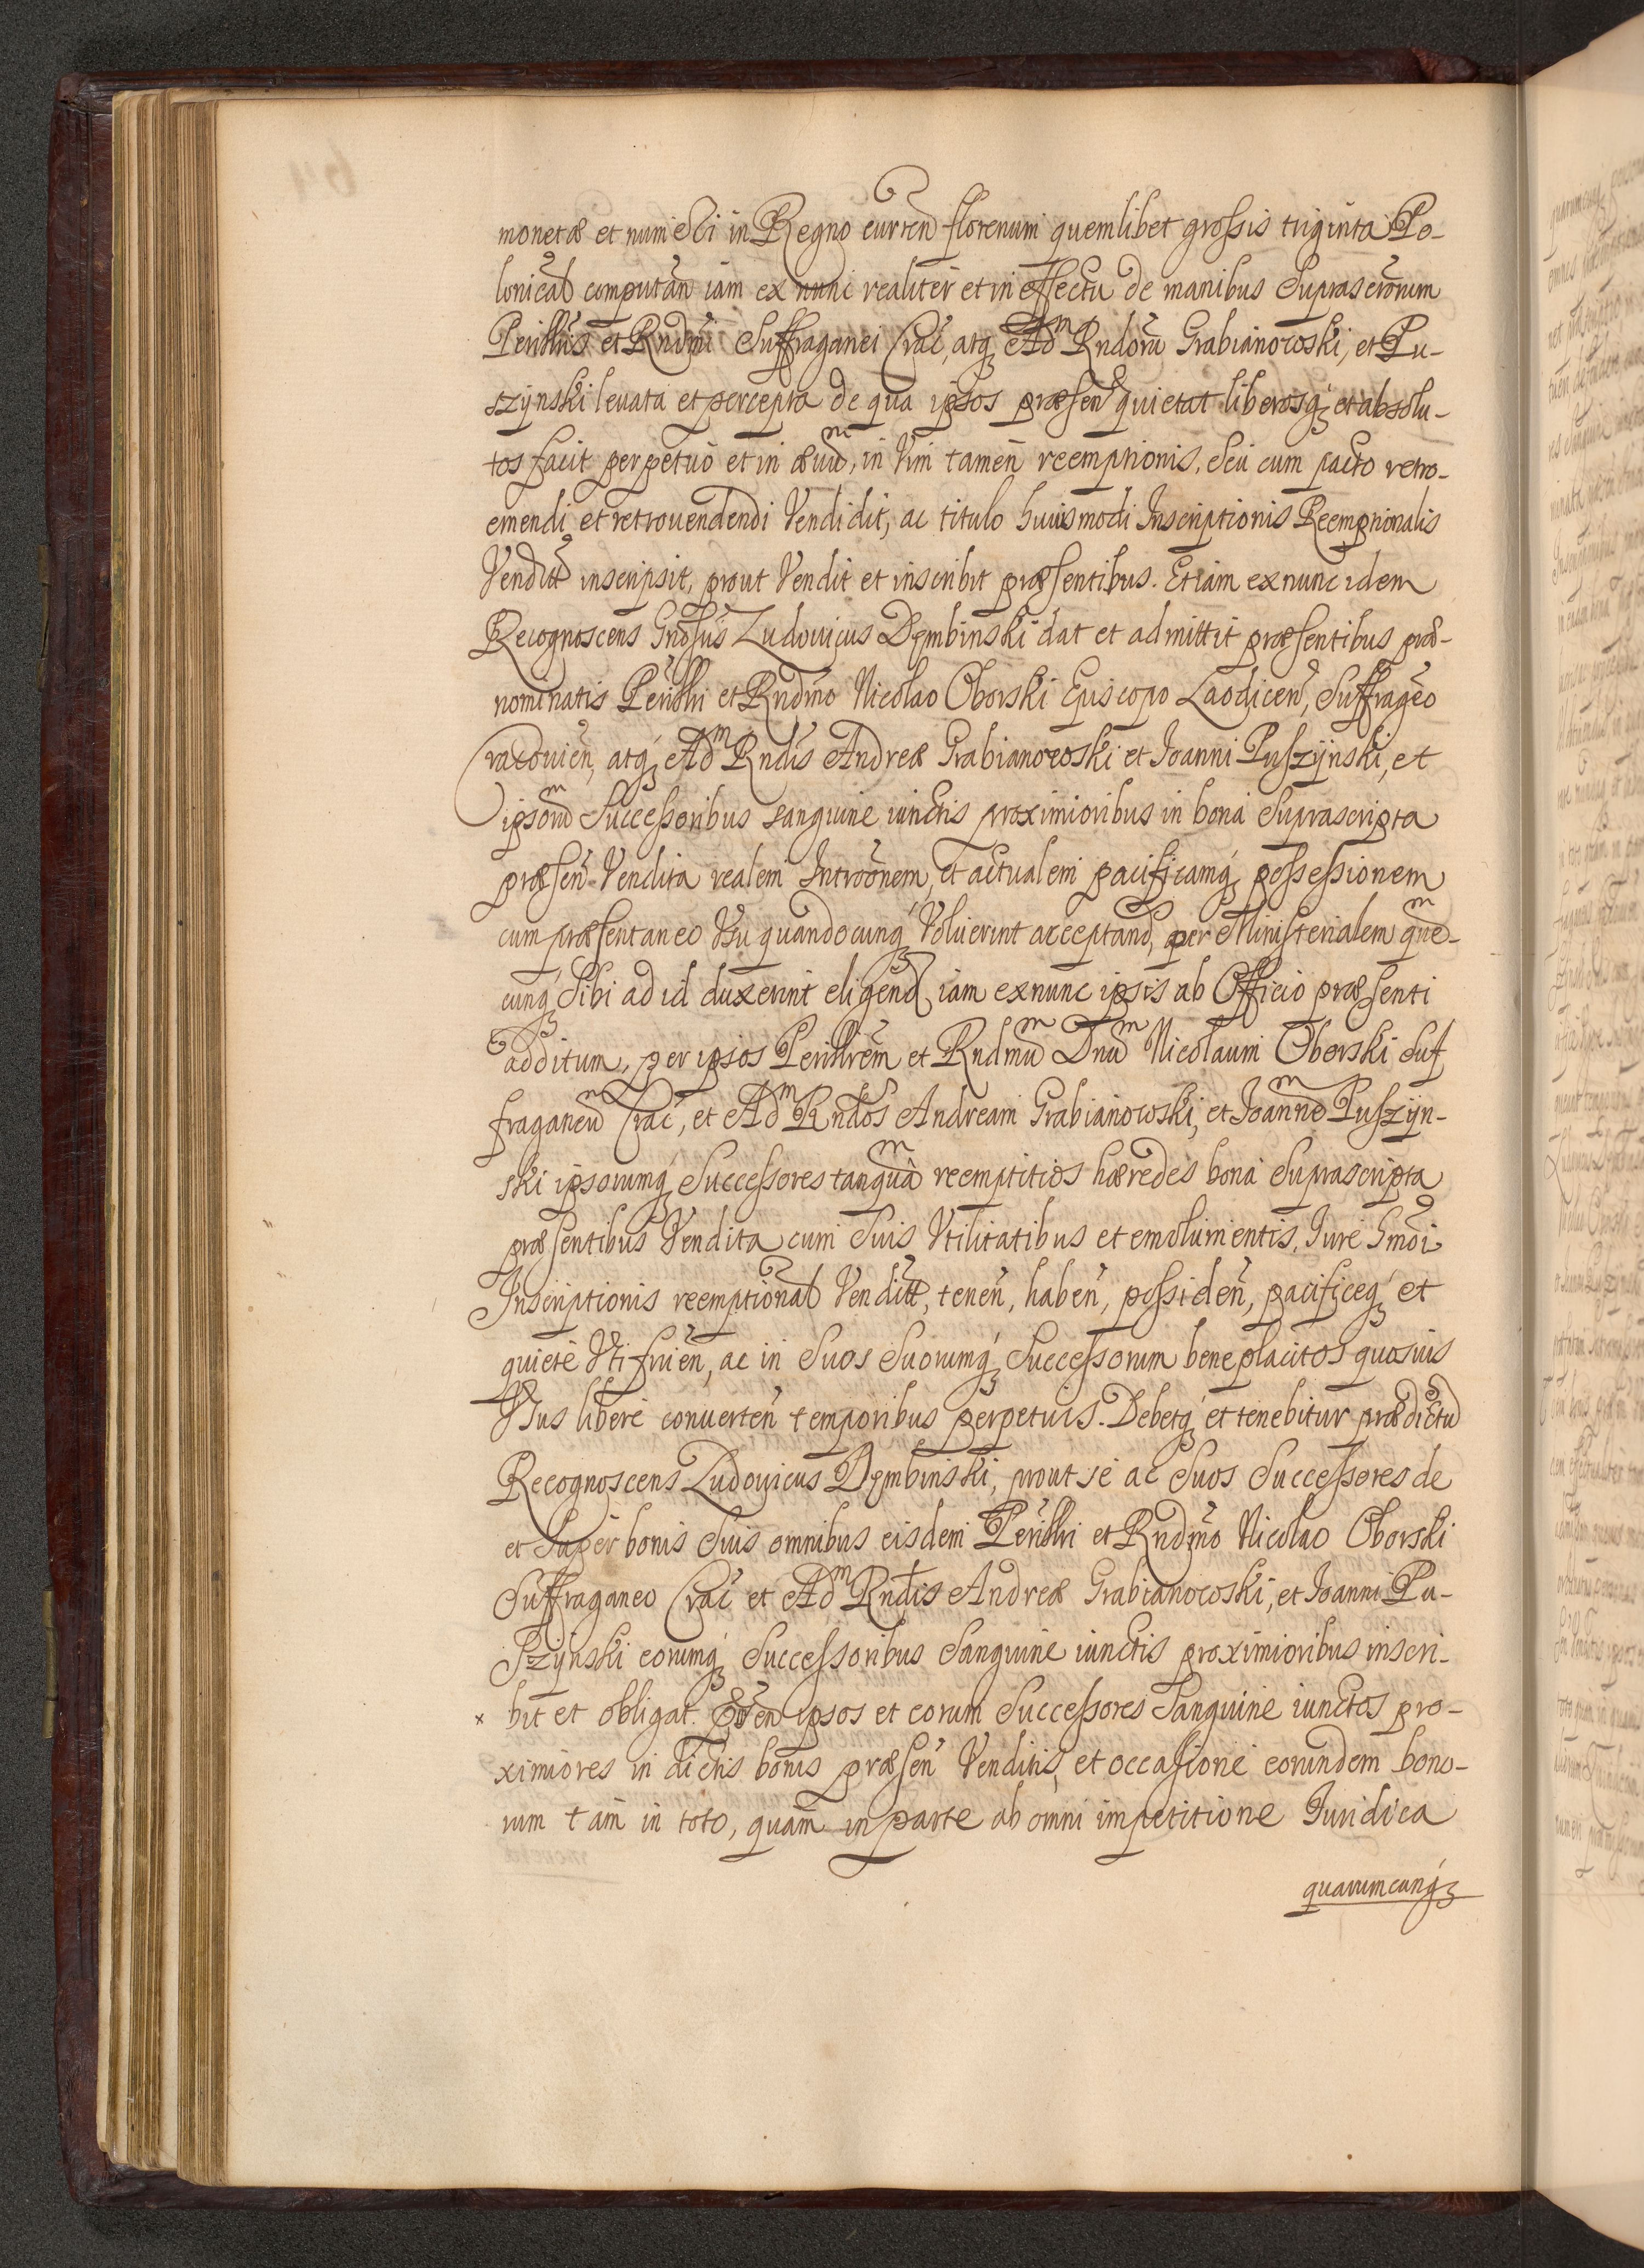 monetæ et numeri in Regno curren florenum quemlibet grossis triginta Po-
lonicał computan iam ex nunc realiter et in effectu de manibus Suprascrõrum
Perillũs et Rndmi Suffraganei Crac, atq3 Adm Rndorũ Grabianowski, et Pu-
szynski leuata et percepta de qua ipsos præsen quietat liberosq3 et absolu-
tos facit perpetuò et in æuũ, in Vim tamen reemptionis, Seu cum pacto retro-
emendi et retrouendendi Vendidit, ac titulo huiusmodi Inscriptionis Reemptionalis
Vendit inscripsit, prout Vendit et inscribit præsentibus. Et iam ex nunc idem
Recognoscens Gnosus Ludouicus Dembinski dat et admittit præsentibus præ-
nominatis Perilłri et Rndmo Nicolao Oborski Episcopo Laodicen, Suffrageo
Cracouien, atq3 Adm Rndis Andreæ Grabianowski et Joanni Puszynski, et
ipsorũ Successoribus sanguine iunctis proximioribus in bona Suprascripta
præsen Vendita realem Intromnem, et actualem pacificamq3 possessionem
cum præsentaneo Vsu quandocunq3 Voluerint acceptand, per Ministerialem quẽ-
cunq3 Sibi ad id duxerint eligend, iam ex nunc ipsis ab Officio præsenti
additum, per ipsos Perillrem et Rndmũ Dnũ Nicolaum Oborski Suf
fraganeũ Crac, et Adm Rndos Andream Grabianowski, et Joannẽ Puszyn-
ski ipsorumq3 Successores tanquã reemptitios hæredes bona Suprascripta
præsentibus Vendita cum Suis Vtilitatibus et emolumentis, Jure hmoi
Inscriptionis reemptionał Venditt, tenen, haben, possiden, pacificeq3 et
quietè Vti fruen, ac in Suos Suorumq3 Successorum beneplacitos quosuis
Vsus liberè conuerten temporibus perpetuis. Debetq3 et tenebitur prædictus
Recognoscens Ludouicus Dembinski, prout se ac Suos Successores de
et Super bonis Suis omnibus eisdem Perillri et Rndmo Nicolao Oborski
Suffraganeo Crac et Adm Rndis Andreæ Grabianowski, et Joanni Pu-
szynski eorumq3 Successoribus Sanguine iunctis proximioribus inscri-
x bit et obligat. ipsos et eorum Successores Sanguine iunctos pro-
ximiores in dictis bonis præsen Venditis, et occasione eorundem bono-
rum tam in toto, quam in parte ab omni impetitione Juridica
quarumcunq3